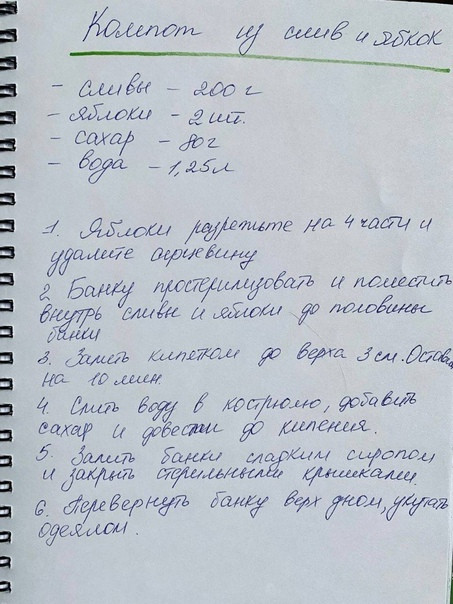 Компот из слив и яблок
- сливы - 200 г
- яблоки - 2 шт.
- сахар - 80г
- вода - 1,25л
1. Яблоки разрежьте на 4 части и
удалите сердцевину
2 Банку простерилизовать и поместить
внутрь сливы и яблоки до половины
банки
3. Залить кипятком до верха 3 см. Остав
на 10 мин.
4. Слить воду в кострюлю, добавить
сахар и довести до кипения.
5. Залить банки сладким сиропом
и закрыть стерильными крышками.
6. Перевернуть банку верх дном, укутать
одеялом.